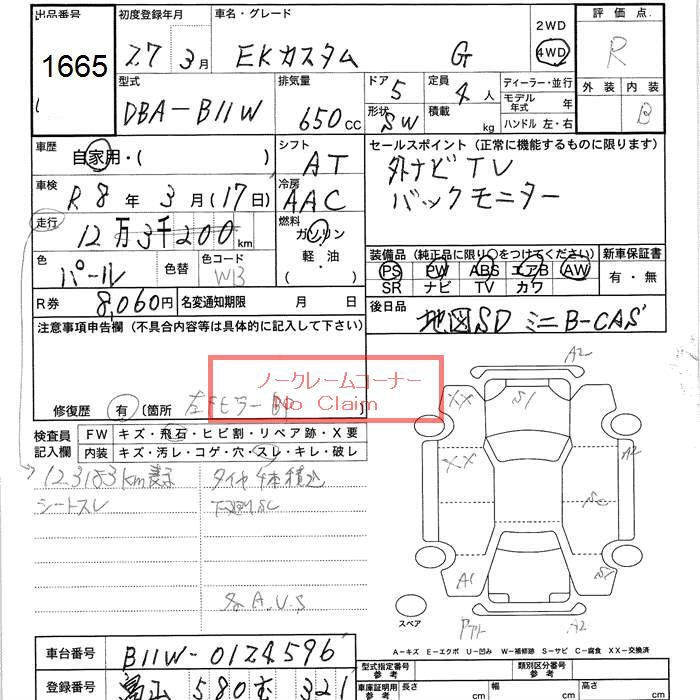 出品番号 初度登録年月 車名・グレード 2WD 評価点
1665 27 3月 EKカスタム G 4WD R
型式 排気量 ドア 5 定員 4人 ディーラー・並行 外装 内装
DBA-B11W 650cc 形状 SW 積載 kg モデル年式 年 B
ハンドル 左・右
車歴 自家用・( ) シフト AT セールスポイント (正常に機能するものに限ります)
車検 R8年 3月(17日) 冷房 AAC 外ナビTV
バックモニター
走行 12万3千200km 燃料 ガソリン
軽・油
( )
色 パール 色替 色コード W13 装備品 (純正品に限り○をつけてください) 新車保証書
PS PW ABS エアB AW 有・無
SR ナビ TV カワ
R券 8,060円 名変通知期限 月 日 後日品 地図SD ミニB-CAS
注意事項申告欄 (不具合内容等は具体的に記入して下さい)
ノークレームコーナー
No Claim
修復歴 有 (箇所 )
検査員 FW キズ・飛石・ヒビ割・リペア跡・X要
記入欄 内装 キズ・汚レ・コゲ・穴・スレ・キレ・破レ
123183km表示 タイヤ4本積込
シートスレ 下廻りSC
A2
XX S1
XX A2
A1 S1
スペア A2
A-キズ E-エクボ U-凹み W-補修跡 S-サビ C-腐食 XX-交換済
車台番号 B11W-0124596 型式指定番号 参考 類別区分番号 参考
登録番号 580 321 車庫証明用 参考 長さ cm 幅 cm 高さ cm